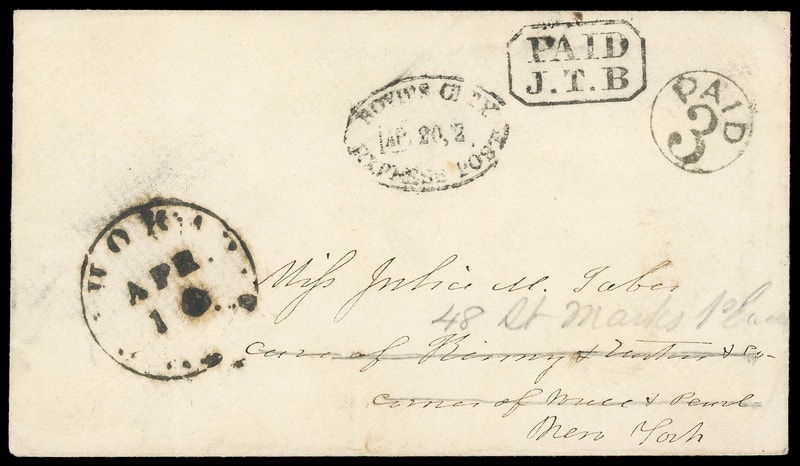 PAID
J.T.B
PAID
3
BOYD'S CITY
AP. 20, 2
EXPRESS POST
APR
1
Miss Julia M. Taber
48 St Marks Place
care of & Co-
corner of & Pearl
New York